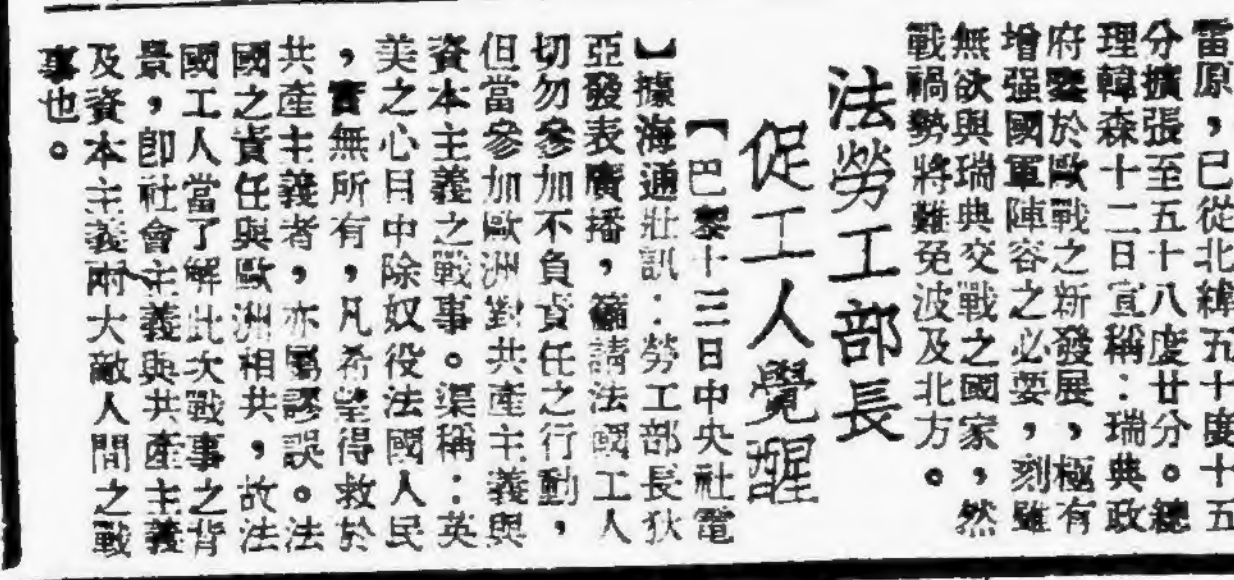 雷原，已從北緯五十度十五
分擴張至五十八度廿分。總
理韓森十二日宣稱：瑞典政
府鑒於歐戰之新發展，極有
增强國軍陣容之必要，刻雖
無欲與瑞典交戰之國家，然
戰禍勢將難免波及北方。
法勞工部長
促工人覺醒
【巴黎十三日中央社電
】據海通社訊：勞工部長狄
亞發表廣播，籲請法國工人
切勿參加不負責任之行動，
但當參加歐洲對共產主義與
資本主義之戰事。渠稱：英
美之心目中除奴役法國人民
，實無所有，凡希望得救於
共產主義者，亦屬謬誤。法
國之責任與歐洲相共，故法
國工人當了解此次戰事之背
景，卽社會主義與共產主義
及資本主義兩大敵人間之戰
事也。